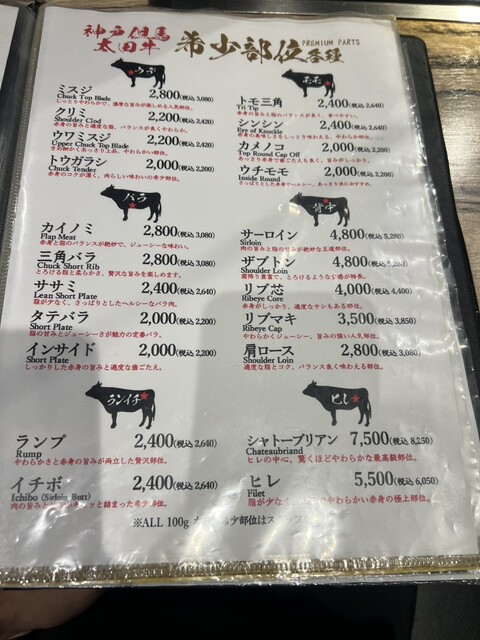 神戸但馬
太田牛
希少部位各種
PREMIUM PARTS
ウデ
ミスジ 2,800(税込 3,080)
Chuck Top Blade
しっとりやわらかで、濃厚な旨みが楽しめる人気部位。
クリミ 2,200(税込 2,420)
Shoulder Clod
赤身の旨みと適度な脂、バランスが良くやわらか。
ウワミスジ 2,200(税込 2,420)
Upper Chuck Top Blade
きめ細かくあっさり上品、やわらかい部位。
トウガラシ 2,000(税込 2,200)
Chuck Tender
赤身のコクが濃く、肉らしい味わいの希少部位。
モモ
トモ三角 2,400(税込 2,640)
Tri Tip
赤身の旨いと脂のバランスが良く、食べやすい。
シンシン 2,400(税込 2,640)
Eye of Knuckle
赤身の美味しさをしっとり味わえる、やわらか部位。
カメノコ 2,000(税込 2,200)
Top Round Cap Off
あっさり赤身で歯ごたえも良く、旨みがしっかり。
ウチモモ 2,000(税込 2,200)
Inside Round
さっぱりとした赤身でヘルシー、あっさり派におすすめ。
バラ
カイノミ 2,800(税込 3,080)
Flap Meat
赤身と脂のバランスが絶妙で、ジューシーな味わい。
三角バラ 2,800(税込 3,080)
Chuck Short Rib
とろける脂と柔らかさ、贅沢な旨みを楽しめます。
ササミ 2,400(税込 2,640)
Lean Short Plate
脂が少なく、さっぱりとしたヘルシーなバラ肉。
タテバラ 2,000(税込 2,200)
Short Plate
脂の甘みとジューシーさが魅力の定番バラ。
インサイド 2,000(税込 2,200)
Short Plate
しっかりした赤身の旨みと適度な歯ごたえ。
背中
サーロイン 4,800(税込 5,280)
Sirloin
肉の旨みと脂の甘みが絶妙な王道部位。
ザブトン 4,800(税込 5,280)
Shoulder Loin
霜降り豊富で、とろけるような香が特長。
リブ芯 4,000(税込 4,400)
Ribeye Core
赤身がしっかり、適度なサシもある部位。
リブマキ 3,500(税込 3,850)
Ribeye Cap
やわらかくジューシー、旨みの強い人気部位。
肩ロース 2,800(税込 3,080)
Shoulder Loin
適度な脂とコク、バランス良く味わえる部位。
ランイチ
ランプ 2,400(税込 2,640)
Rump
やわらかさと赤身の旨みが両立した贅沢部位。
イチボ 2,400(税込 2,640)
Ichibo (Sirloin Butt)
肉の旨みと ギュッと詰まった希少部位。
ヒレ
シャトーブリアン 7,500(税込 8,250)
Chateaubriand
ヒレの中心、驚くほどやわらかな最高級部位。
ヒレ 5,500(税込 6,050)
Filet
脂が少なく やわらかい赤身の極上部位。
※ALL 100g 少部位はスタッフ